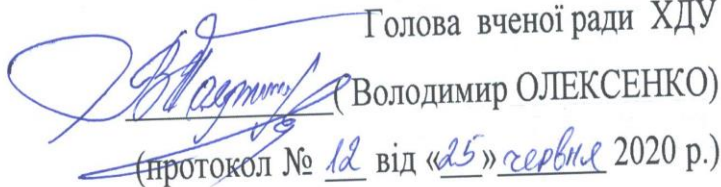 Голова вченої ради ХДУ
(Володимир ОЛЕКСЕНКО)
(протокол № 12 від «25» червня 2020 р.)